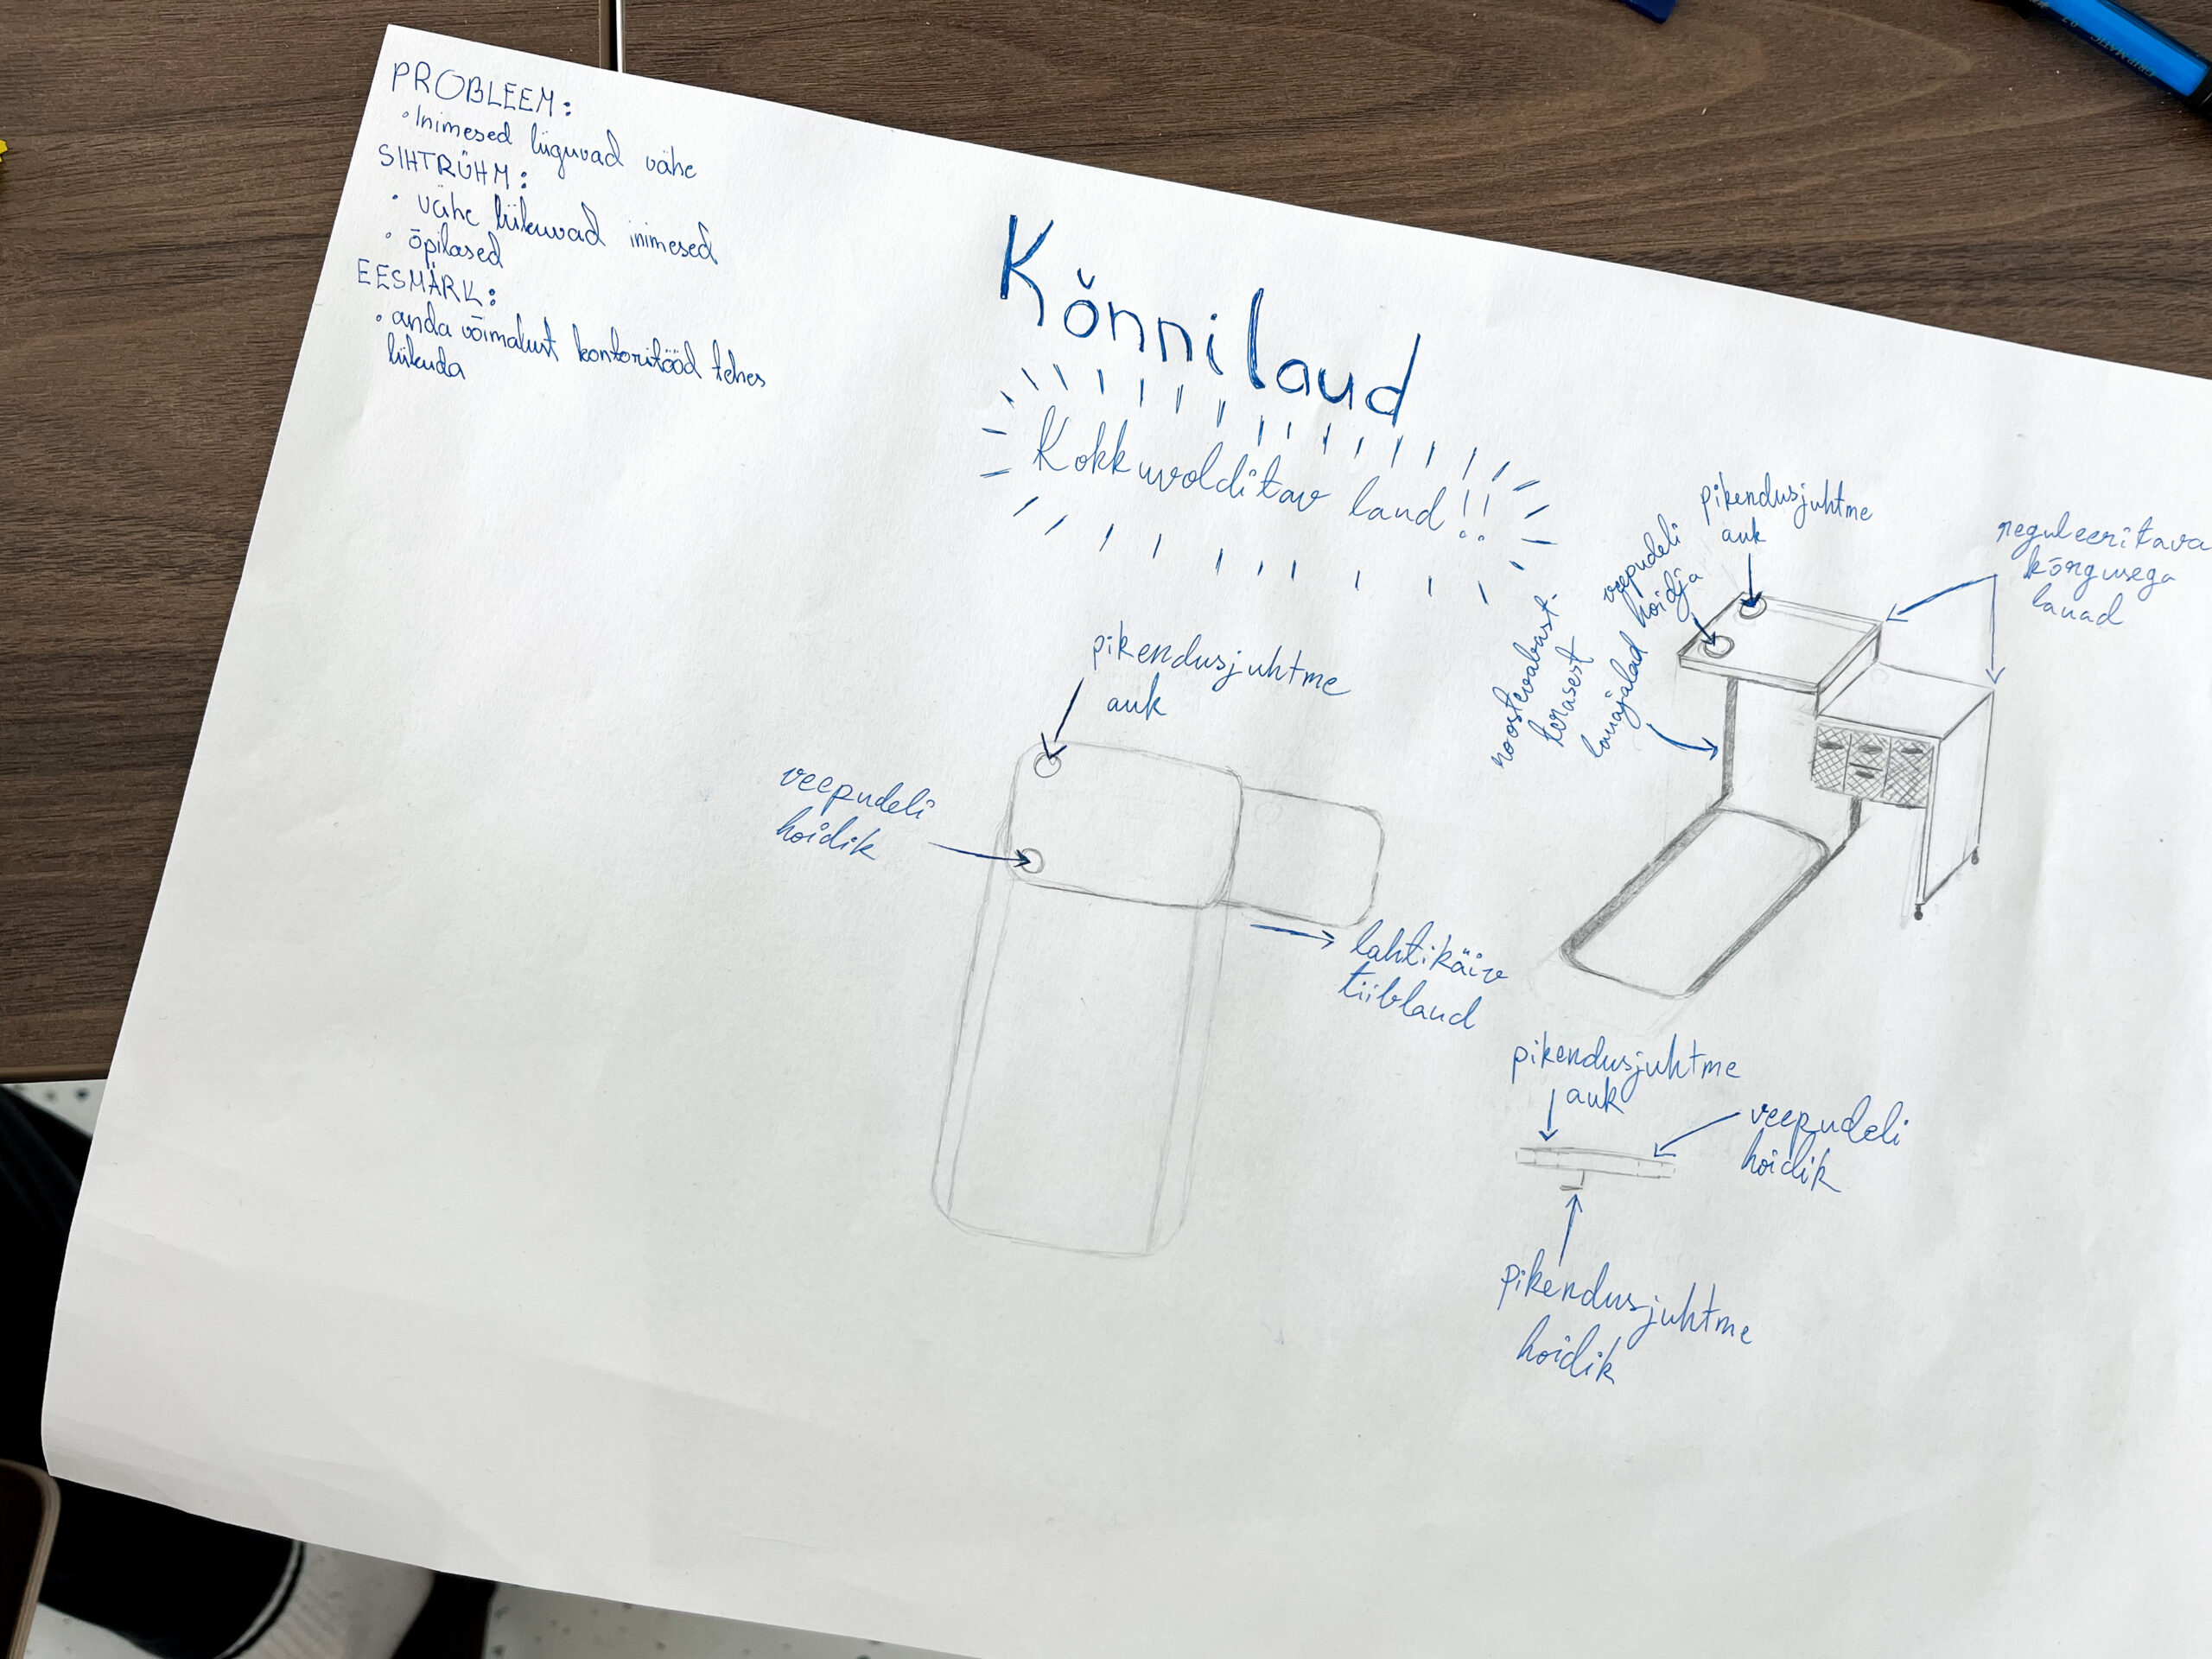 PROBLEEM:
• Inimesed liiguvad vähe
SIHTRÜHM:
• vähe liikuvad inimesed
• õpilased
EESMÄRK:
• anda võimalust kontoritööd tehes
liikuda
Kõnnilaud
Kokkuvolditav laud!!
pikendusjuhtme
auk
veepudeli
hoidik
lahtikäiv
tiiblaud
pikendusjuhtme
auk
veepudeli
hoidja
roostevabast
terasest
lauajalad
reguleeritava
kõrgusega
lauad
pikendusjuhtme
auk
veepudeli
hoidik
pikendusjuhtme
hoidik